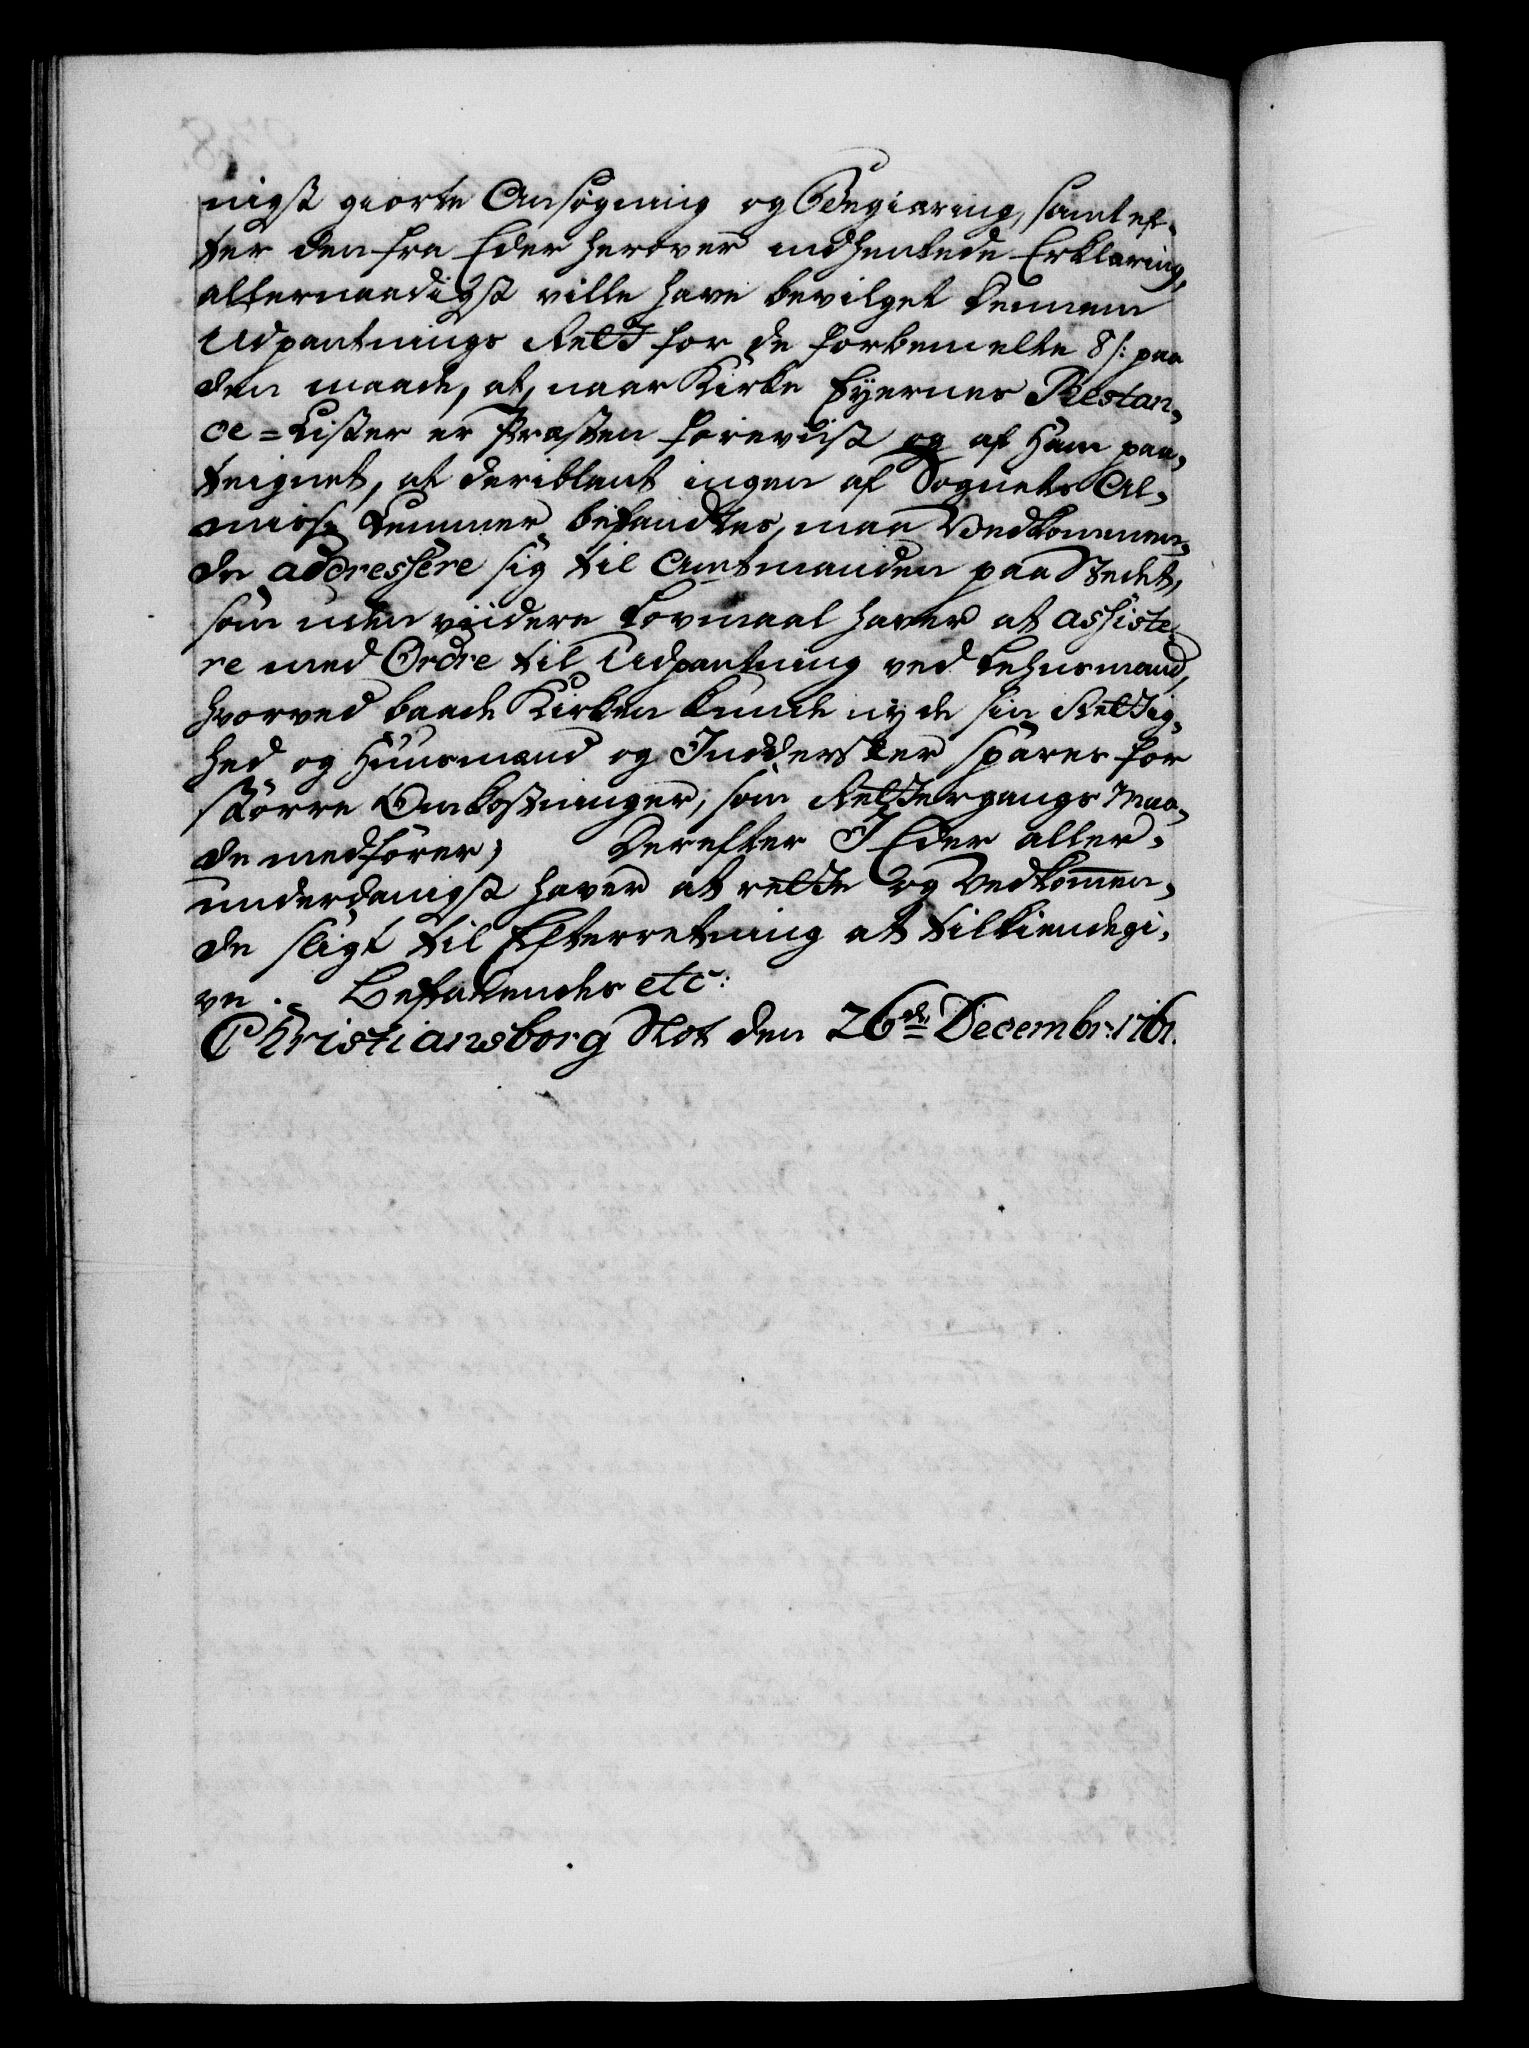 nigst giorte Ansøgning og Begiæring, samt ef-
ter den fra Eder herover indhentede Erklæring,
allernaadigst ville have bevilget dennem
Udpantnings Rett for de forbemelte 8 s: paa
den maade, at, naar Kirke Eyernes Restan-
ce=Lister er Præsten foreviist og af Ham paa-
teignet, at deriblant ingen af Sognets Al-
misse Lemmer befandtes, maa Vedkommen-
de addressere sig til Amtmanden paa Stedet,
som uden viidere Lovmaal haver at assiste-
re med Ordre til Udpantning ved Lehnsmand,
hvorved baade Kirken kunde nyde sin Rettig-
hed og Huusmænd og Inderster spares for
større Omkostninger, som Rettergangs Maa-
de medfører; Derefter I Eder aller-
underdanigst haver at rette og Vedkommen-
de sligt til Efterretning at tilkiendegi-
ve. Befalendes etc:
Christiansborg Slot den 26de Decembr: 1761.